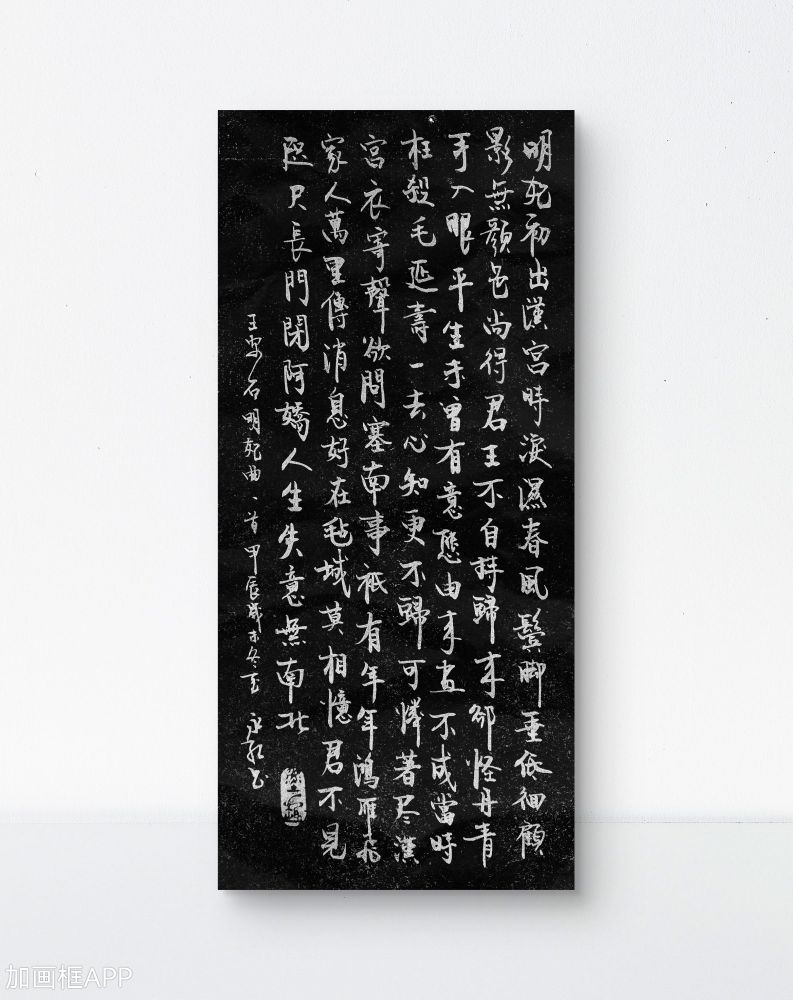 明妃初出漢宮時淚濕春風鬢脚垂低徊顧
影無顏色尚得君王不自持歸來卻怪丹青
手入眼平生未曾有意態由來畫不成當時
枉殺毛延壽一去心知更不歸可憐著盡漢
宮衣寄聲欲問塞南事祇有年年鴻雁飛
家人萬里傳消息好在氈城莫相憶君不見
咫尺長門閉阿嬌人生失意無南北
王安石明妃曲一首甲辰歲末冬至 永書
加画框APP